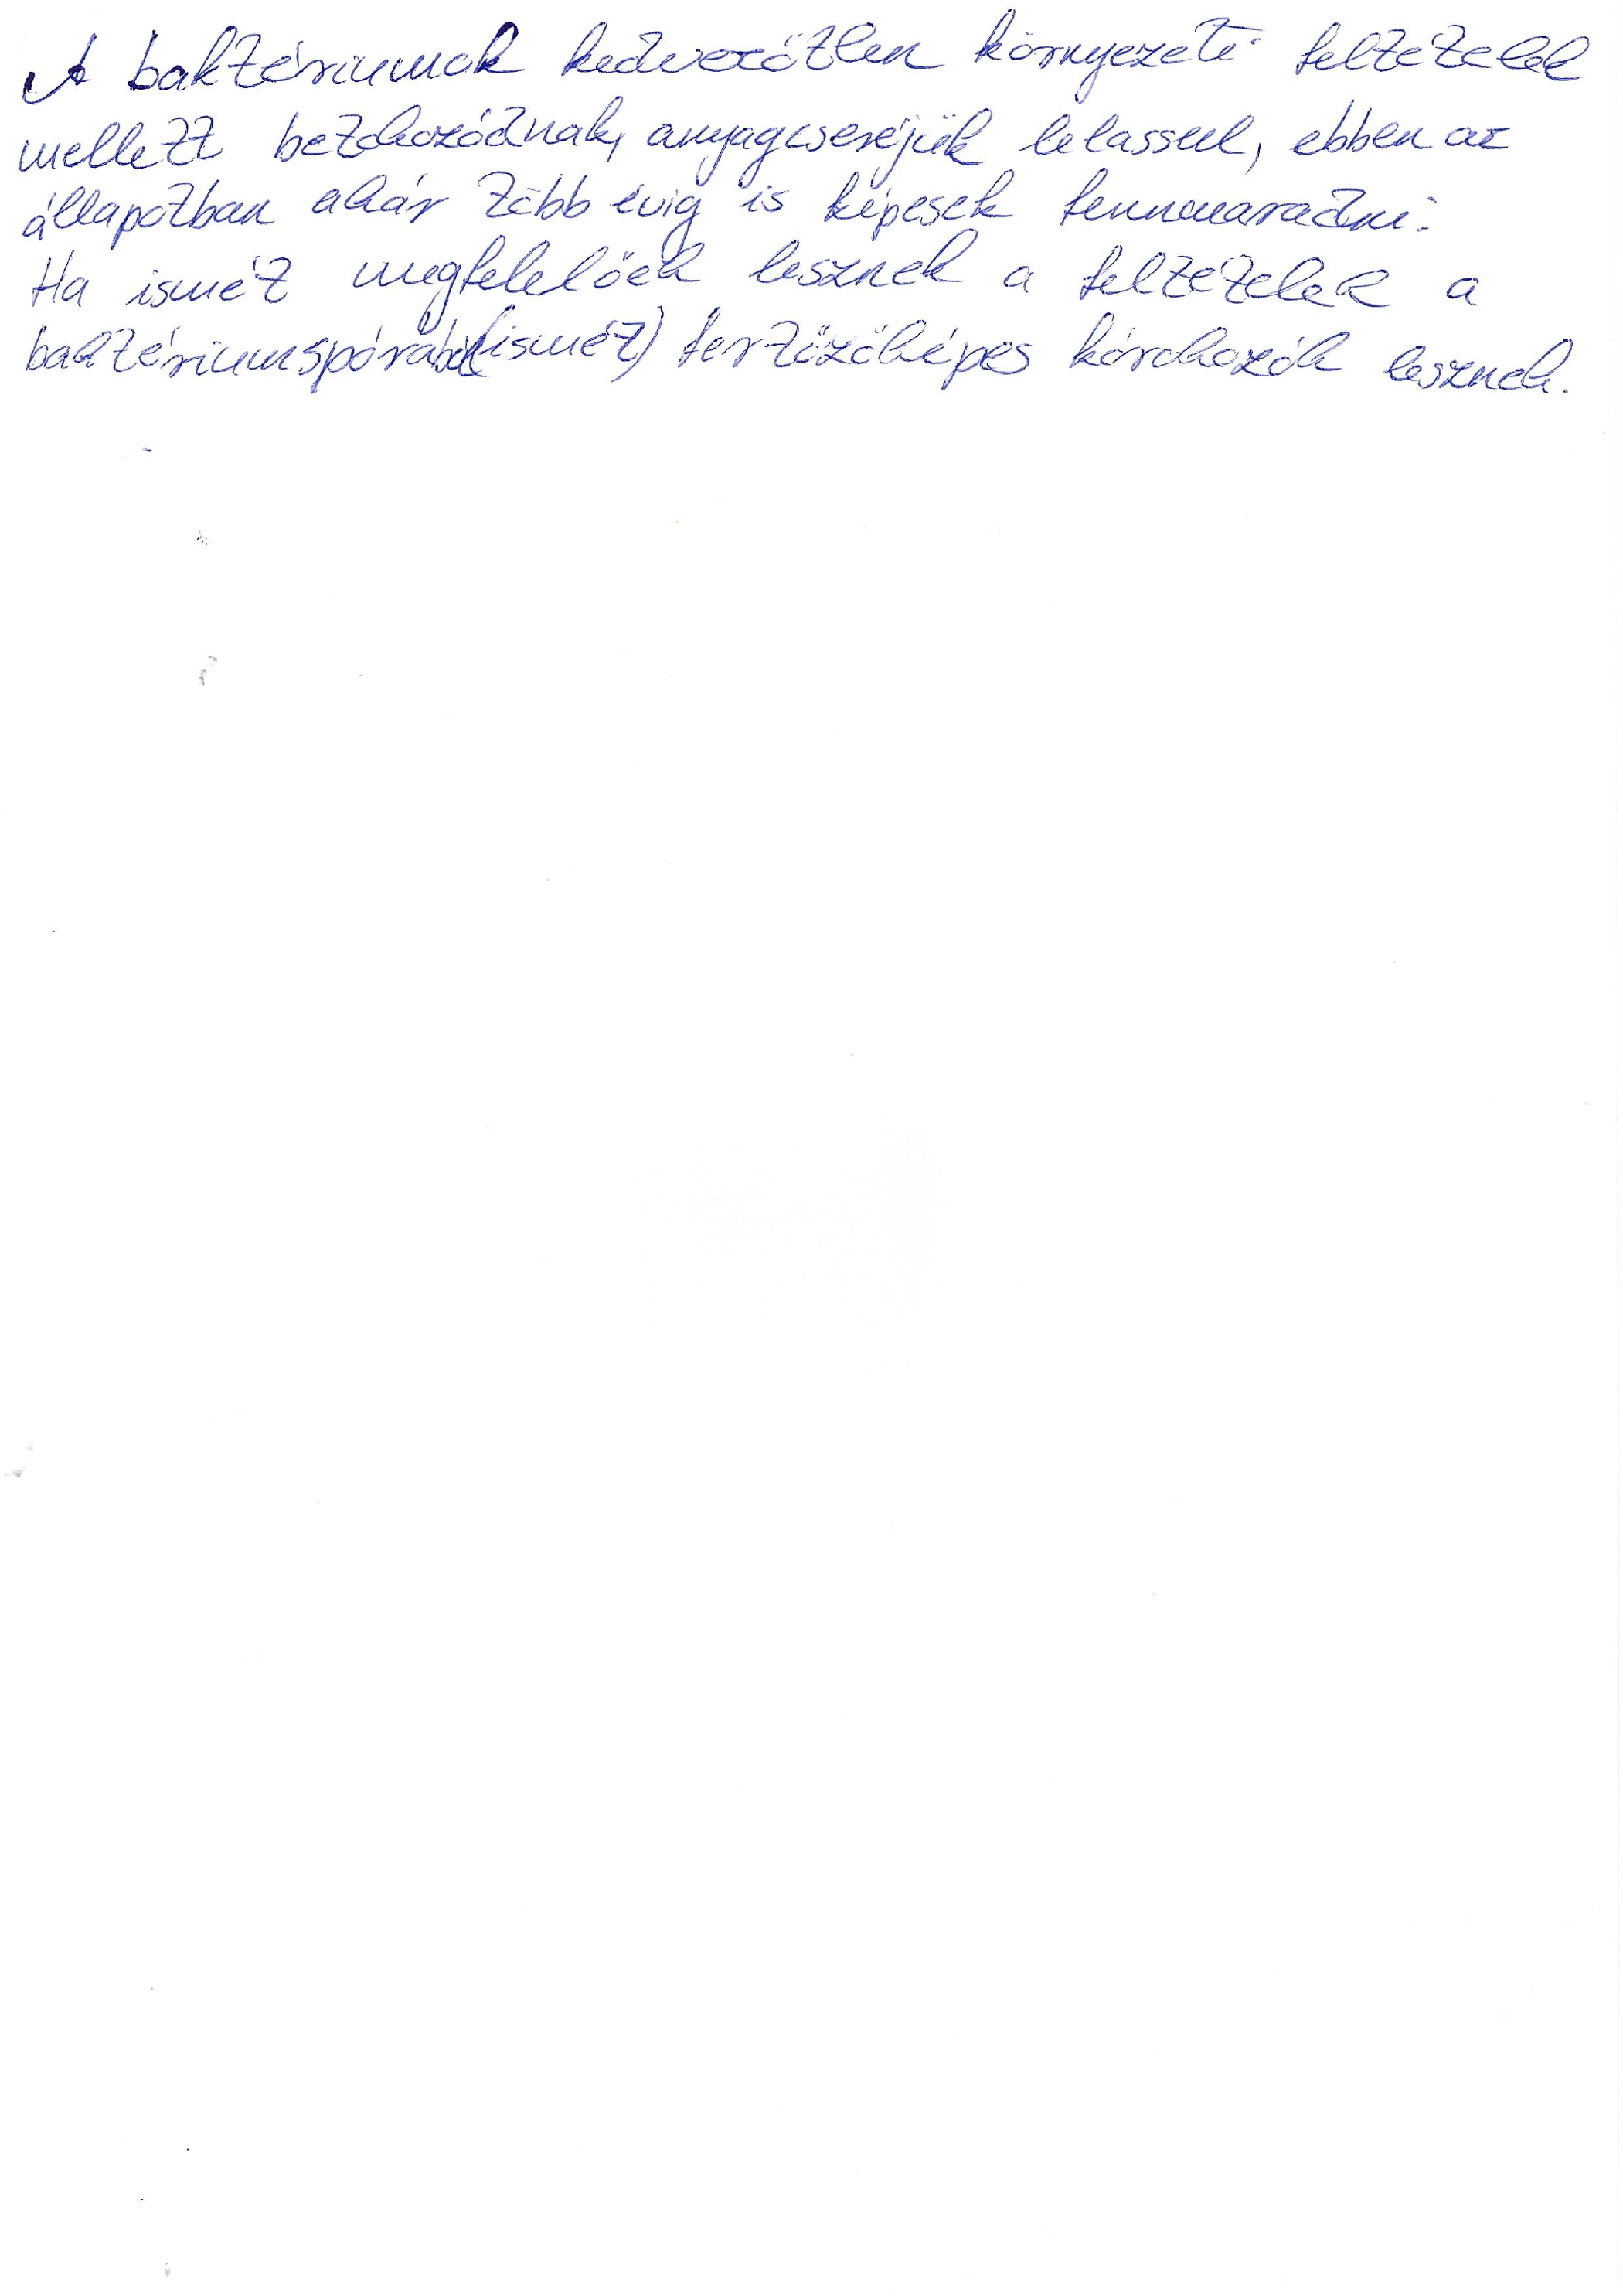 A baktériumok kedvezőtlen környezeti feltételek
mellett betokozódnak, anyagcseréjük lelassul, ebben az
állapotban akár több évig is képesek fennmaradni.
Ha ismét megfelelőek lesznek a feltételek a
baktériumspórából (ismét) fertőzőképes kórokozók lesznek.